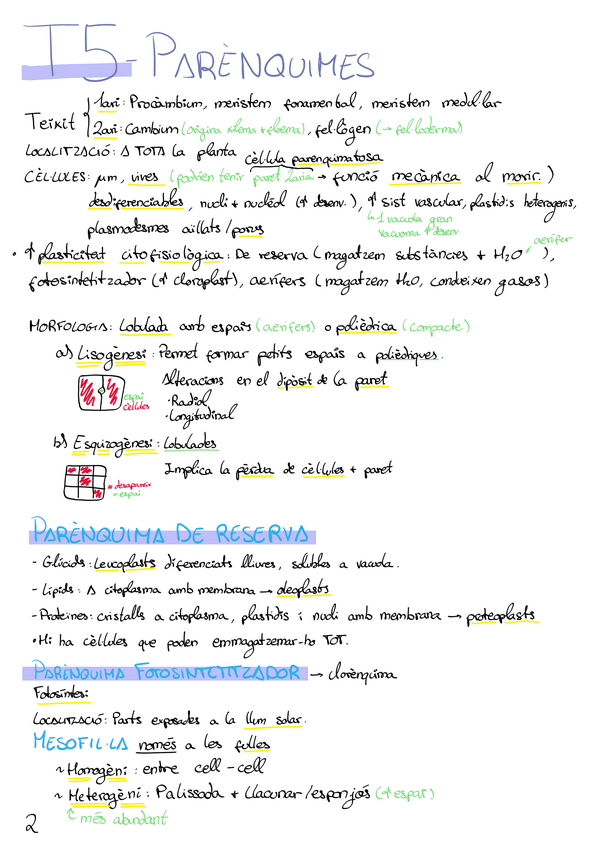 T5 - PARÈNQUIMES
Teixit 1ari: Procàmbium, meristem fonamental, meristem medul·lar
2ari: Cambium (origina xilema + floema), fel·lògen (→ fel·loderma)
LOCALITZACIÓ: A TOTA la planta cèl·lula parenquimatosa
CÈL·LULES: µm, vives (podrien tenir paret 2aria → funció mecànica al morir.)
desdiferenciables, nucli + nuclèol (↑ desenv.), ↑ sist vascular, plastidis heterogenis,
↳ 1 vacuola gran
plasmodesmes aïllats / porus
vacuoma ↑ desenv
• ↑ plasticitat citofisiològica: De reserva (magatzem substàncies + H2O aerífer),
fotosintetitzador (↑ cloroplast), aerífers (magatzem H2O, condueixen gasos)
MORFOLOGIA: Lobulada amb espais (aerífers) o polièdrica (compacte)
a) Lisogènesi: Permet formar petits espais a polièdriques.
Alteracions en el dipòsit de la paret
espai
cèl·lules
• Radial
• Longitudinal
b) Esquizogènesi: Lobulades
Implica la pèrdua de cèl·lules + paret
= desapareix
= espai
PARÈNQUIMA DE RESERVA
- Glúcids: Leucoplasts diferenciats lliures, solubles a vacuola.
- Lípids: A citoplasma amb membrana → oleoplasts
- Proteïnes: cristalls a citoplasma, plastidis i nucli amb membrana → proteoplasts
• Hi ha cèl·lules que poden emmagatzemar-ho TOT.
PARÈNQUIMA FOTOSINTETITZADOR → clorènquima
Fotosíntesi:
LOCALITZACIÓ: Parts exposades a la llum solar.
MESOFIL·LA només a les fulles
~ Homogèni: entre cell-cell
~ Heterogèni: Palissada + Llacunar/esponjós (↑ espai)
↑ més abundant
2